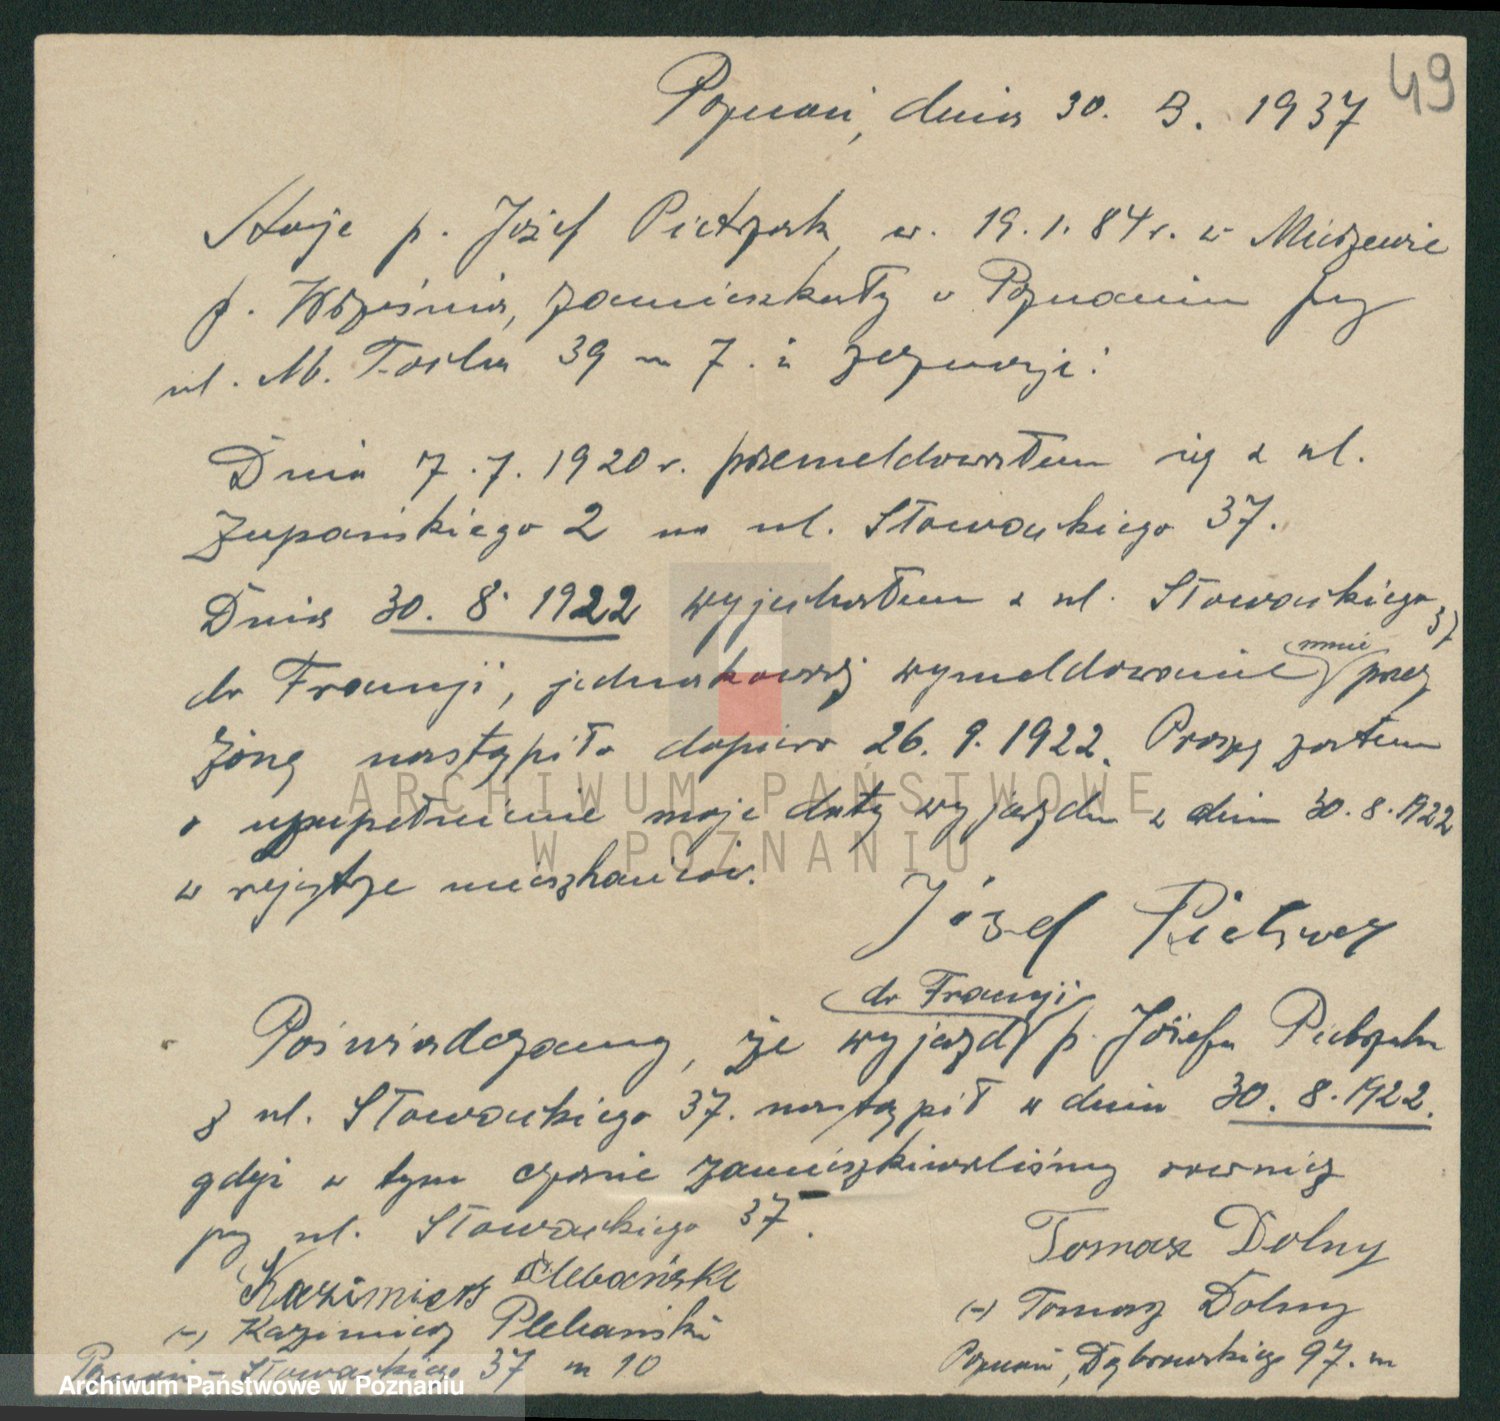 49
Poznań, dnia 30. 3. 1937
Staje p. Józef Pietrzak, ur. 19.1.84 r. w Mierzewie
p. Września, zamieszkały w Poznaniu przy
ul. M. Focha 39 m 7. i zeznaje:
Dnia 7.7.1920 r. przemeldowałem się z ul.
Żupańskiego 2 na ul. Słowackiego 37.
Dnia 30. 8. 1922 wyjechałem z ul. Słowackiego 37
mnie
do Francji, jednakowoż wymeldowanie przez
żonę nastąpiło dopiero 26. 9. 1922. Proszę zatem
o uzupełnienie moje daty wyjazdu z dnia 30. 8. 1922
w rejestrze mieszkańców.
Józef
do Francji
Poświadczamy, że wyjazd p. Józefa Pietrzaka
z ul. Słowackiego 37. nastąpił w dniu 30. 8. 1922.
gdyż w tym czasie zamieszkiwaliśmy rownież
przy ul. Słowackiego 37.
Tomasz Dolny
Kazimierz Plebański
(-) Tomasz Dolny
(-) Kazimierz Plebański
Poznań, Dąbrowskiego 97. m
Poznań - Słowackiego 37 m 10
ARCHIWUM PAŃSTWOWE
W POZNANIU
Archiwum Państwowe w Poznaniu